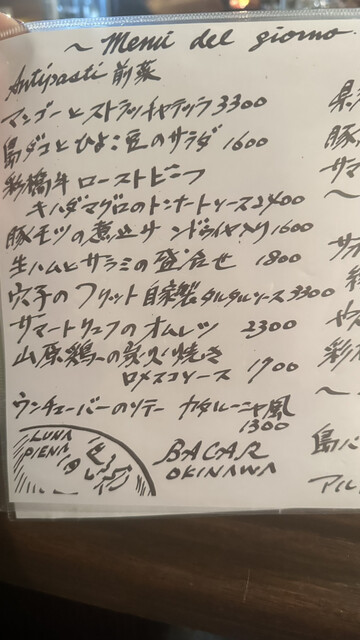 ~ Menú del giorno
Antipasti 前菜
マンゴーとストラッキャテッラ 3300
島ダコとひよこ豆のサラダ 1600
牛 ローストビーフ
キハダマグロのトンナートソース 2400
豚モツの煮込み ンドゥイヤ入り 1600
生ハムとサラミの盛合せ 1800
穴子のフリット 自家製タルタルソース 3300
サマートリュフのオムレツ 2300
山原鶏への炭火焼き
ロメスコソース 1700
ウンチェーバーのソテー カタルーニャ風
1300
LUNA
PIENA
BACAR
OKINAWA
豚
サマ
~
サ
や
~
島
アル